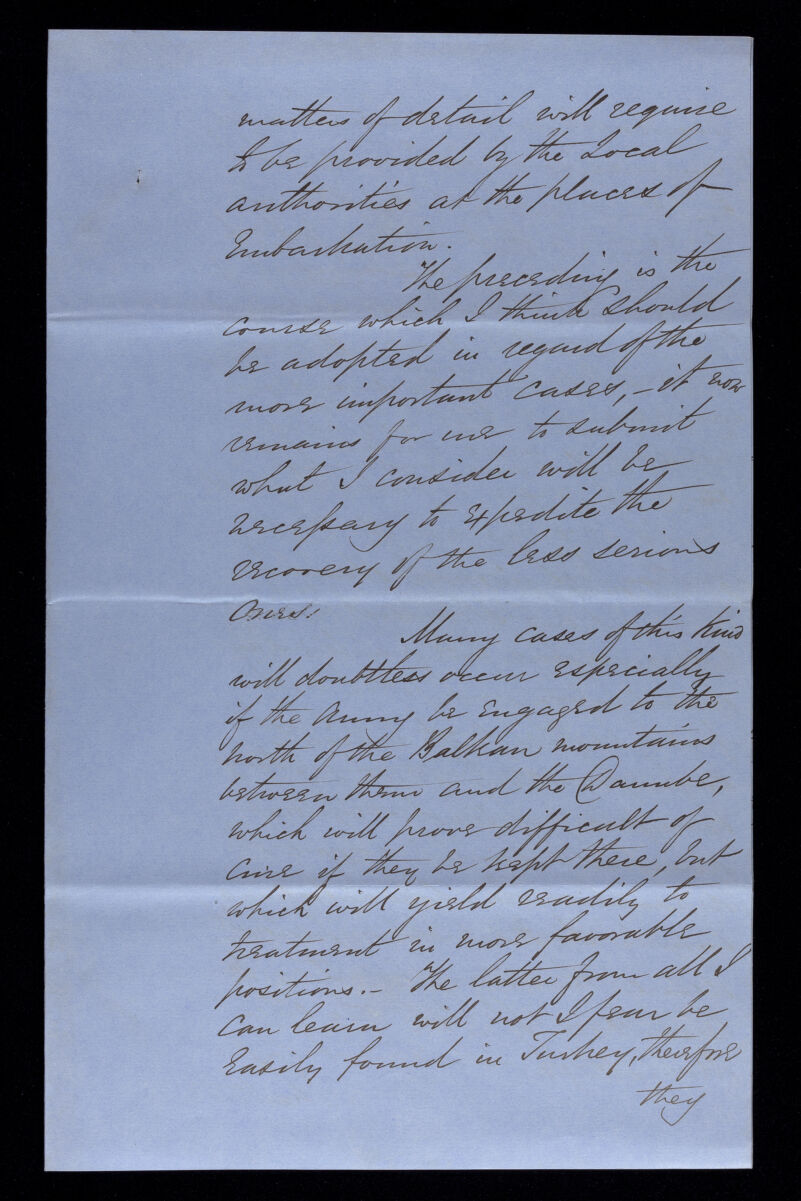 matters of detail will require
to be provided by the Local
authorities at the places of
Embarkation.
The preceding is the
course which I think should
be adopted in regard of the
more important cases, - it now
remains for me to submit
what I consider will be
necessary to expedite the
recovery of the less serious
ones:
Many cases of this kind
will doubtless occur especially
if the Army be engaged to the
north of the Balkan mountains
between them and the Danube,
which will prove difficult of
cure if they be kept there, but
which will yield readily to
treatment in more favorable
positions. - The latter from all I
can learn will not I fear be
easily found in Turkey, therefore
they